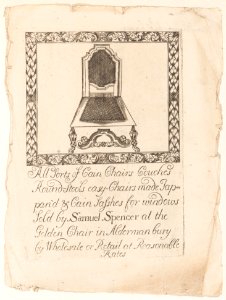 All Sorts of Cain Chairs Couches
Round-stools easy-Chairs made Jap-
pan'd & Cain Sashes for windows
Sold by Samuel Spencer at the
Golden Chair in Aldermanbury
by Wholesale or Retail at Reasonable
Rates